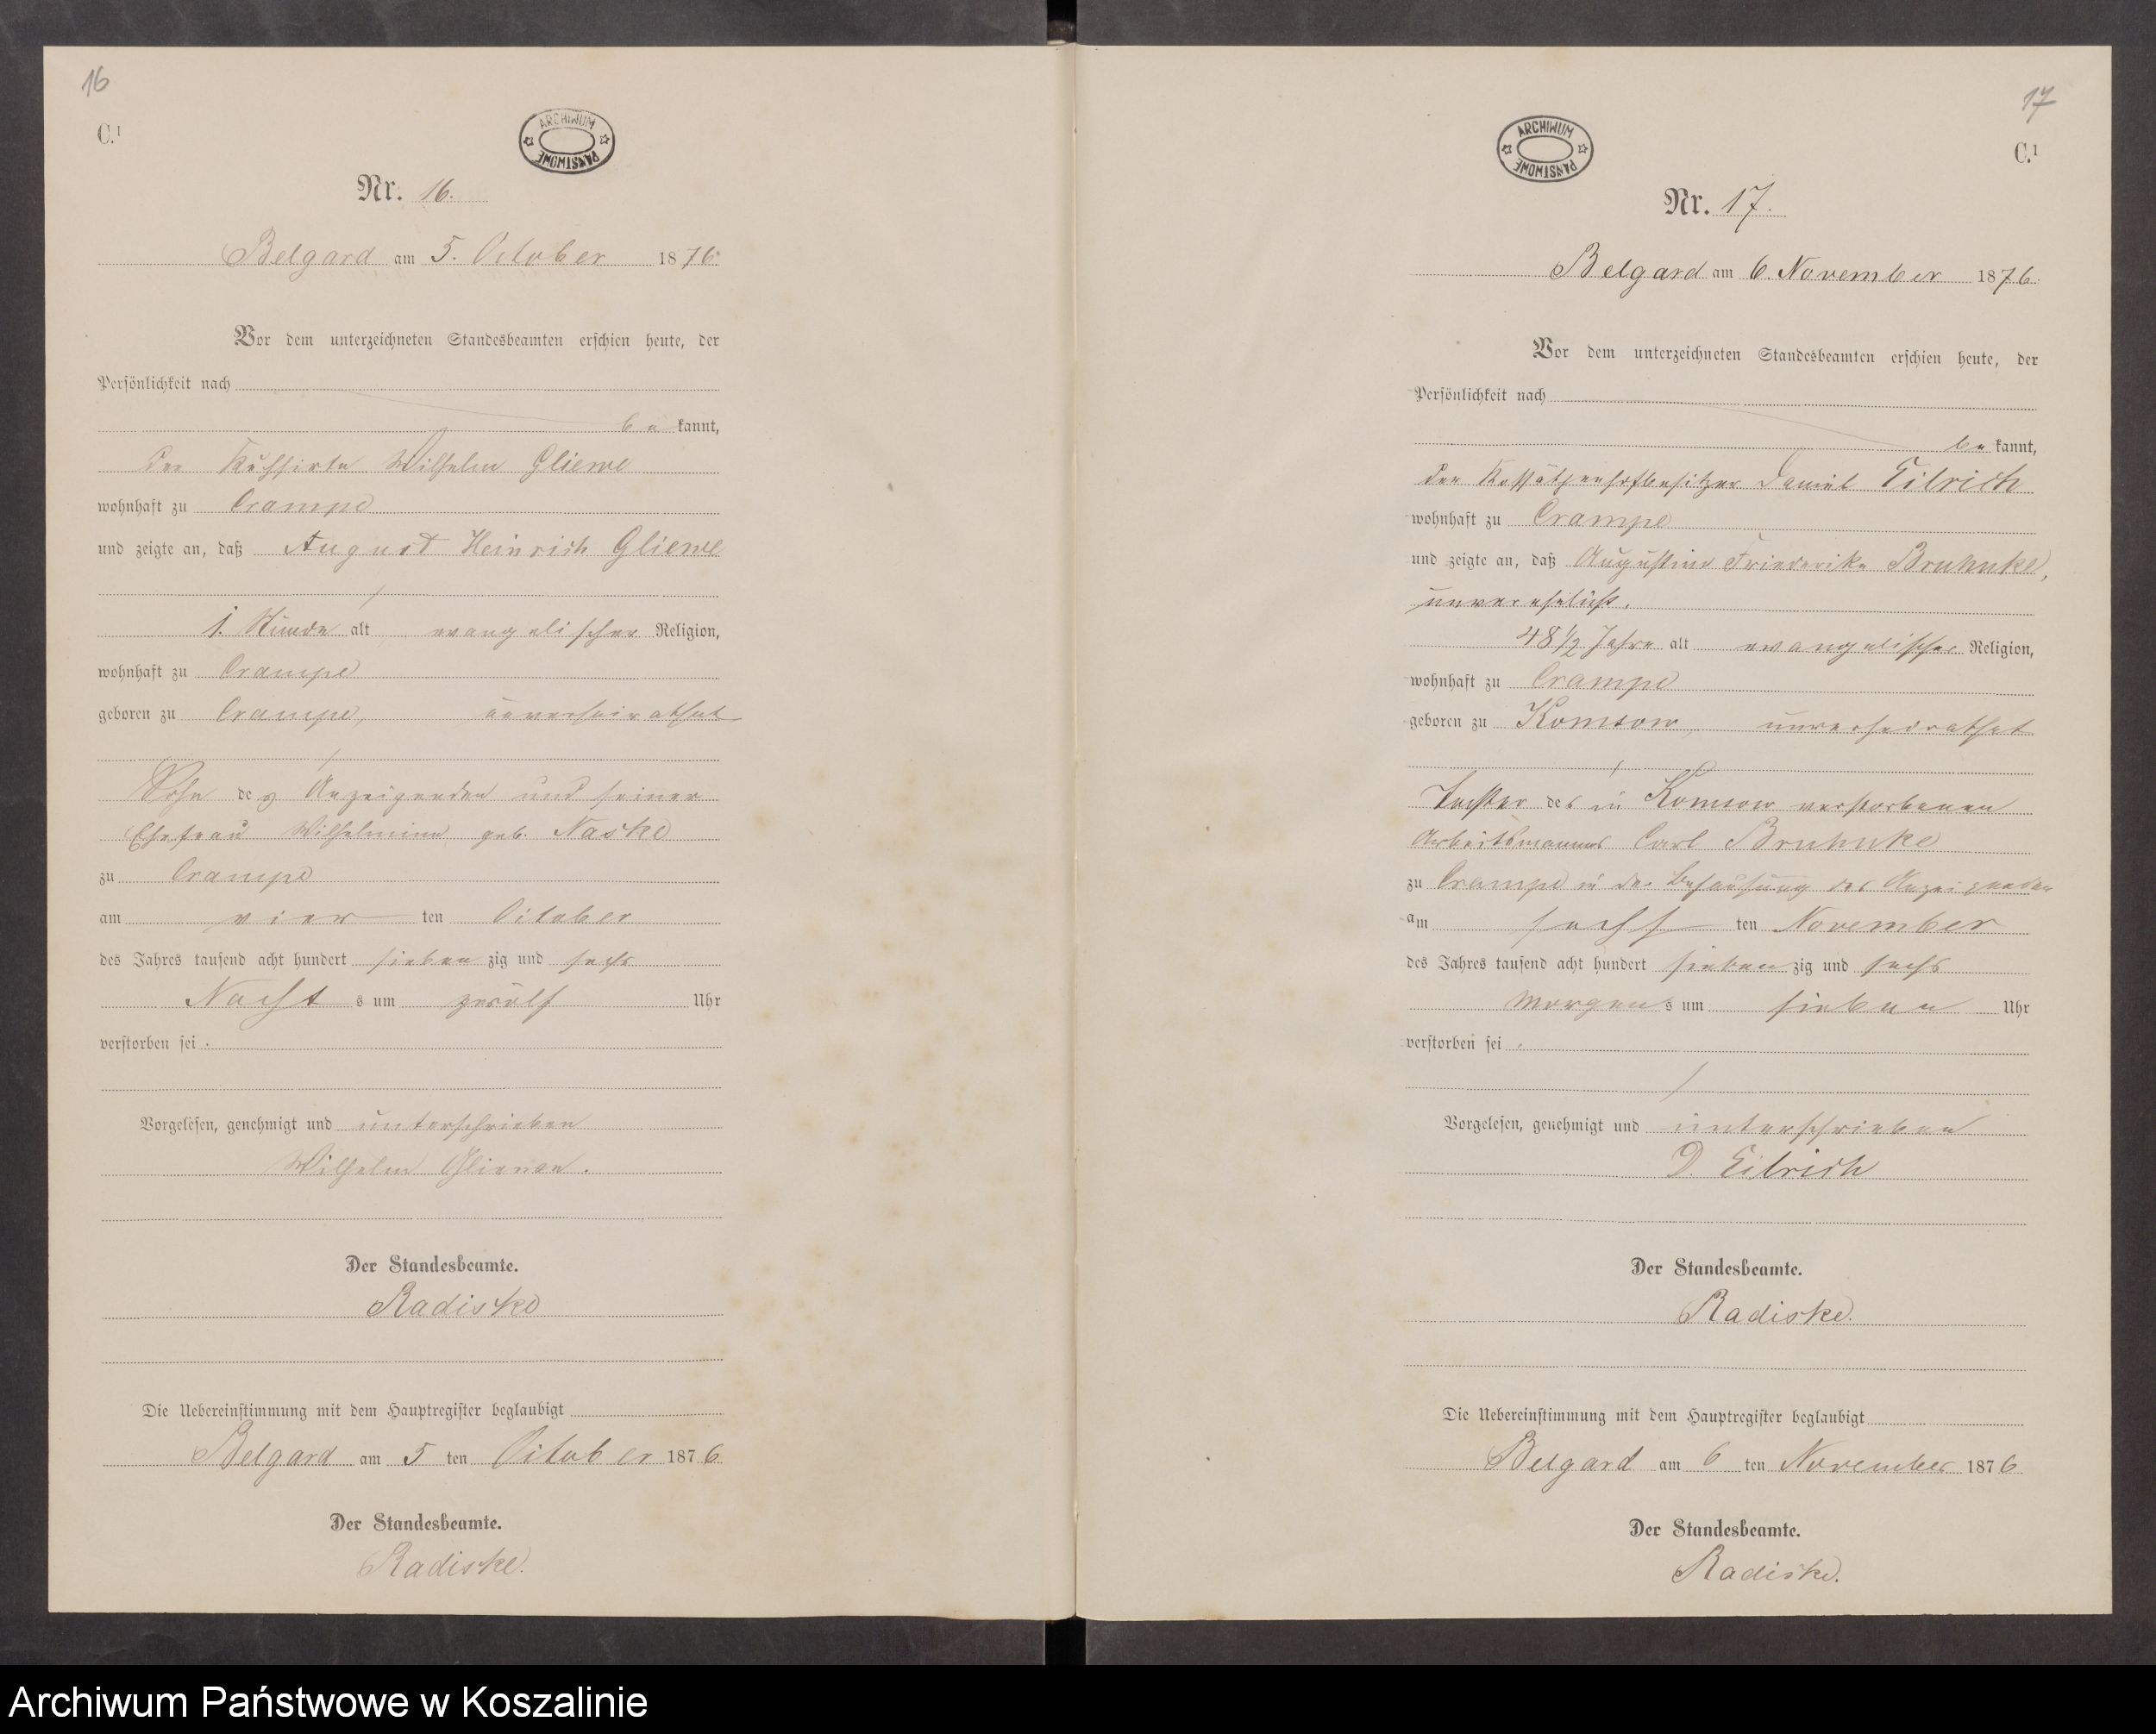 16
C.¹
ARCHIWUM PAŃSTWOWE
Nr. 16.
Belgard am 5. October 1876.
Vor dem unterzeichneten Standesbeamten erschien heute, der
Persönlichkeit nach
be kannt,
der Kuhhirte Wilhelm Gliewe
wohnhaft zu Crampe
und zeigte an, daß August Heinrich Gliewe
1. Stunde alt evangelischer Religion,
wohnhaft zu Crampe
geboren zu Crampe, unverheirathet
Sohn des Anzeigenden und seiner
Ehefrau Wilhelmine geb. Naske
zu Crampe
am vier ten October
des Jahres tausend acht hundert sieben zig und sechs
Nacht s um zwölf Uhr
verstorben sei.
Vorgelesen, genehmigt und unterschrieben
Wilhelm Gliewe.
Der Standesbeamte.
Radiske
Die Uebereinstimmung mit dem Hauptregister beglaubigt
Belgard am 5 ten October 1876
Der Standesbeamte.
Radiske.
17
C.¹
ARCHIWUM PAŃSTWOWE
Nr. 17.
Belgard am 6. November 1876.
Vor dem unterzeichneten Standesbeamten erschien heute, der
Persönlichkeit nach
be kannt,
der Kossäthenhofbesitzer Daniel Eilrich
wohnhaft zu Crampe
und zeigte an, daß Augustine Friederike Bruhnke,
unverehelicht,
48 1/2 Jahre alt evangelischer Religion,
wohnhaft zu Crampe
geboren zu Komsow, unverheirathet
Tochter des in Komsow verstorbenen
Arbeitsmannes Carl Bruhnke
zu Crampe in der Behausung des Anzeigenden
am sechs ten November
des Jahres tausend acht hundert sieben zig und sechs
Morgen s um sieben Uhr
verstorben sei.
Vorgelesen, genehmigt und unterschrieben
D. Eilrich
Der Standesbeamte.
Radiske.
Die Uebereinstimmung mit dem Hauptregister beglaubigt
Belgard am 6 ten November 1876
Der Standesbeamte.
Radiske.
Archiwum Państwowe w Koszalinie